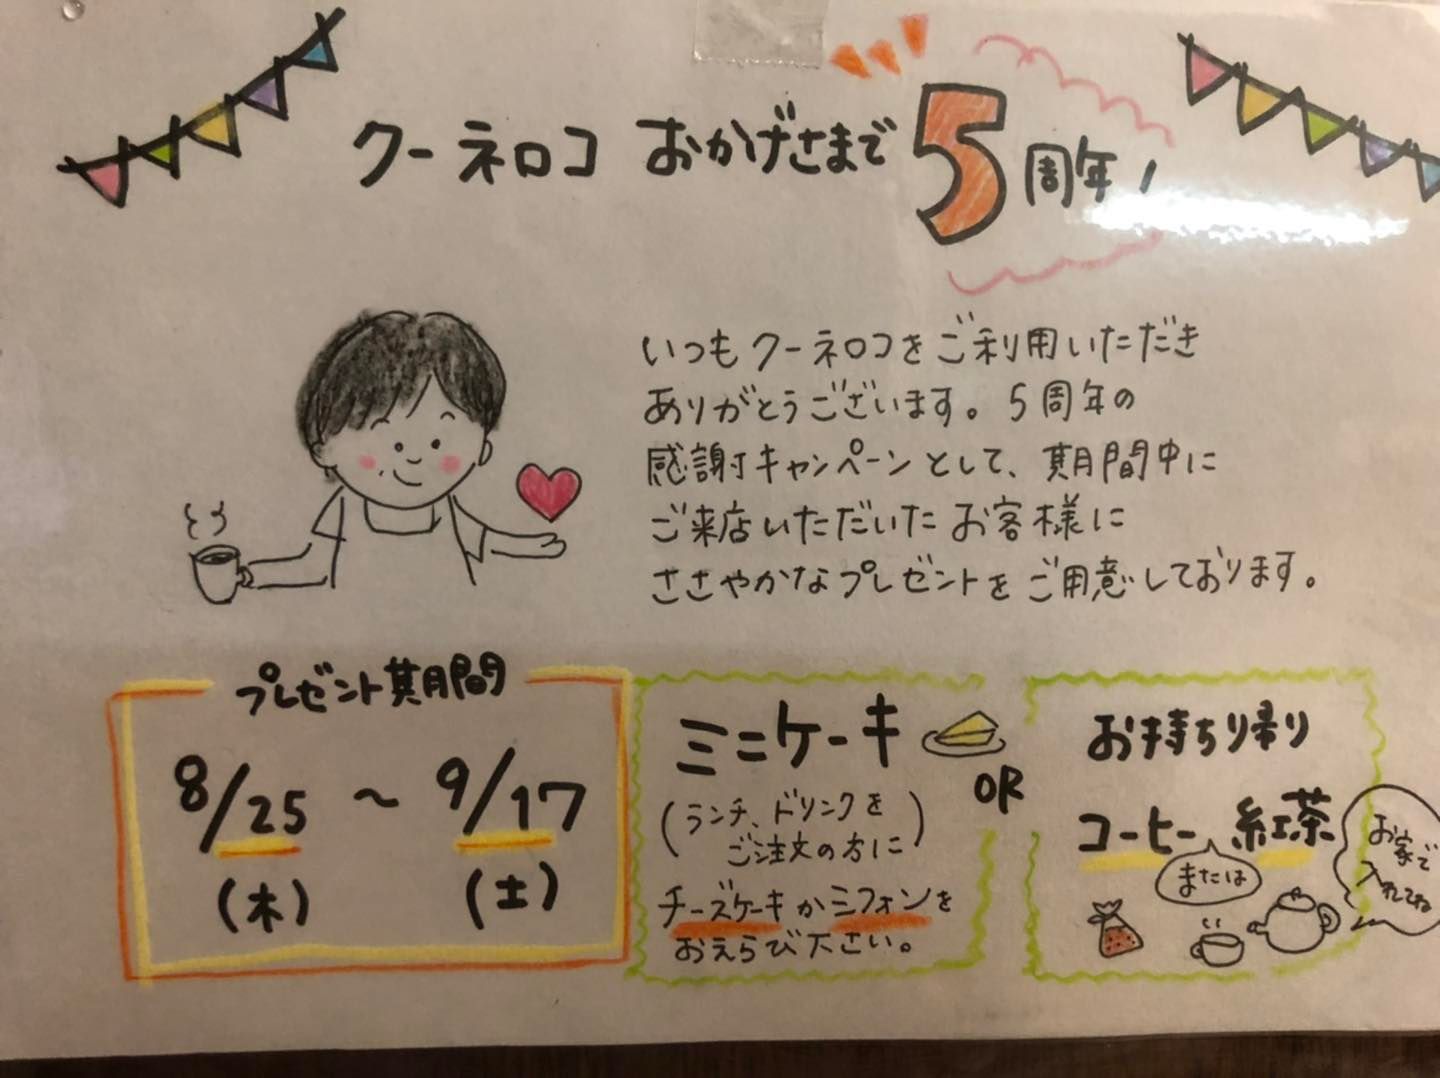 クーネロコ おかげさまで 5周年！
いつもクーネロコをご利用いただき
ありがとうございます。5周年の
感謝キャンペーンとして、期間中に
ご来店いただいたお客様に
ささやかなプレゼントをご用意しております。
プレゼント期間
8/25 ～ 9/17
(木) (土)
ミニケーキ
(ランチ、ドリンクを
ご注文の方に)
チーズケーキかシフォンを
おえらび下さい。
OR
お持ち帰り
コーヒー 紅茶
または
お家で
入れてね